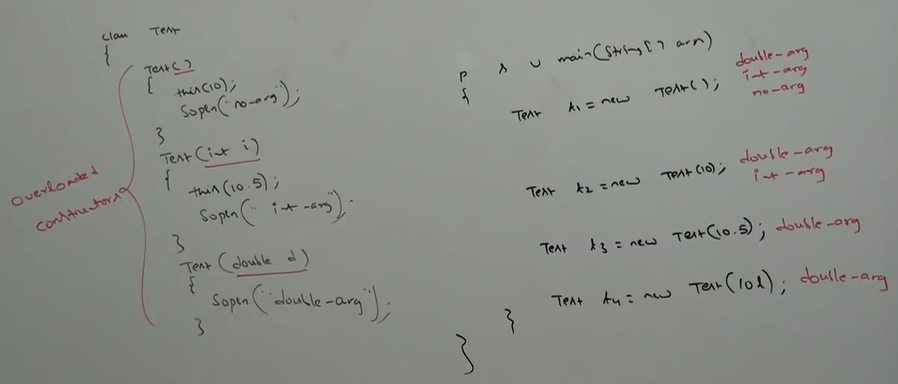 class Test
{
Test()
{
this(10);
Sopen("no-arg");
}
Test(int i)
{
this(10.5);
Sopen("int-arg");
}
Test(double d)
{
Sopen("double-arg");
}
overloaded
constructors
P S V main(String[] args)
{
Test t1 = new Test(); double-arg
int-arg
no-arg
Test t2 = new Test(10); double-arg
int-arg
Test t3 = new Test(10.5); double-arg
Test t4 = new Test(10l); double-arg
}
}